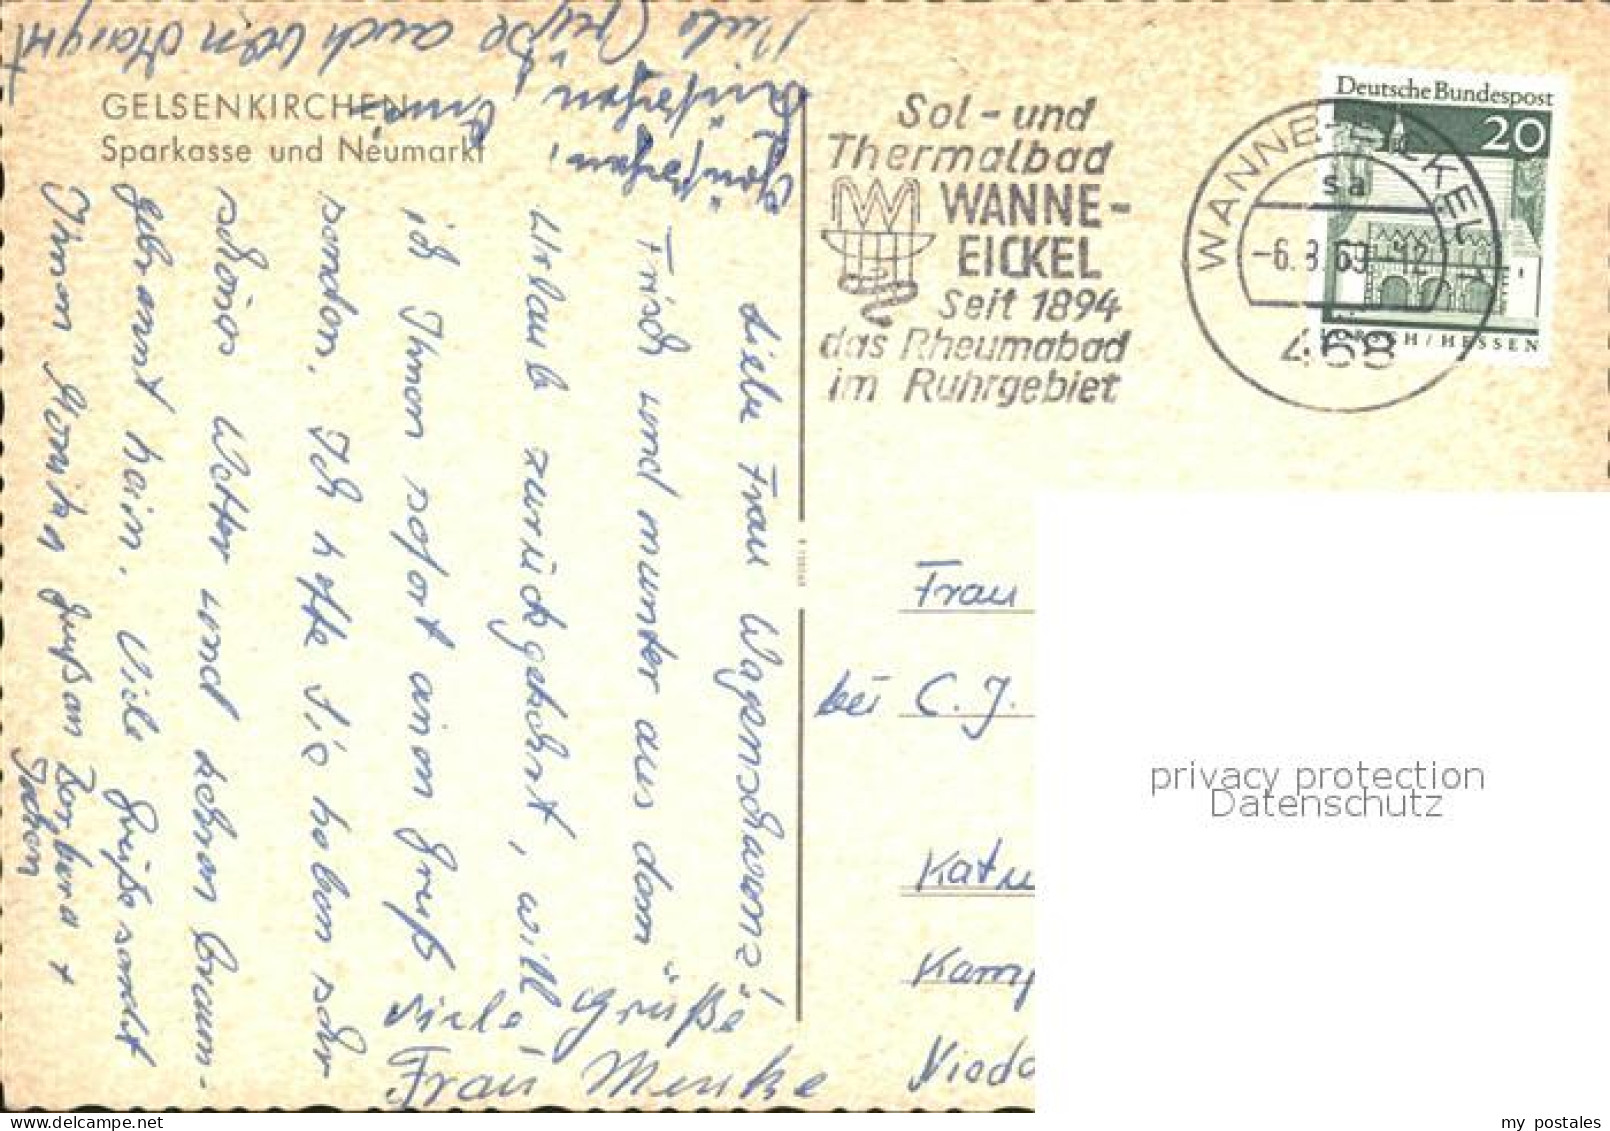 GELSENKIRCHEN
Sparkasse und Neumarkt
Liebe Frau Wagenschwenz!
Frisch und munter aus dem
Urlaub zurückgekehrt, will
ich Ihnen sofort einen Gruß
senden. Ich hoffe Sie haben sehr
schönes Wetter und kehren braun-
gebrannt heim. Viele Grüße sendet
Ihnen Monika grüßen Barbara +
Jochen
Viele Grüße
Frau Menke
Viele Grüße auch von Margret
Sol- und
Thermalbad
WANNE-
EICKEL
Seit 1894
das Rheumabad
im Ruhrgebiet
WANNE-EICKEL 1
sa
-6.8.69-12
468
Deutsche Bundespost
20
LORSCH/HESSEN
Frau
bei C. J.
privacy protection
Datenschutz
my postales